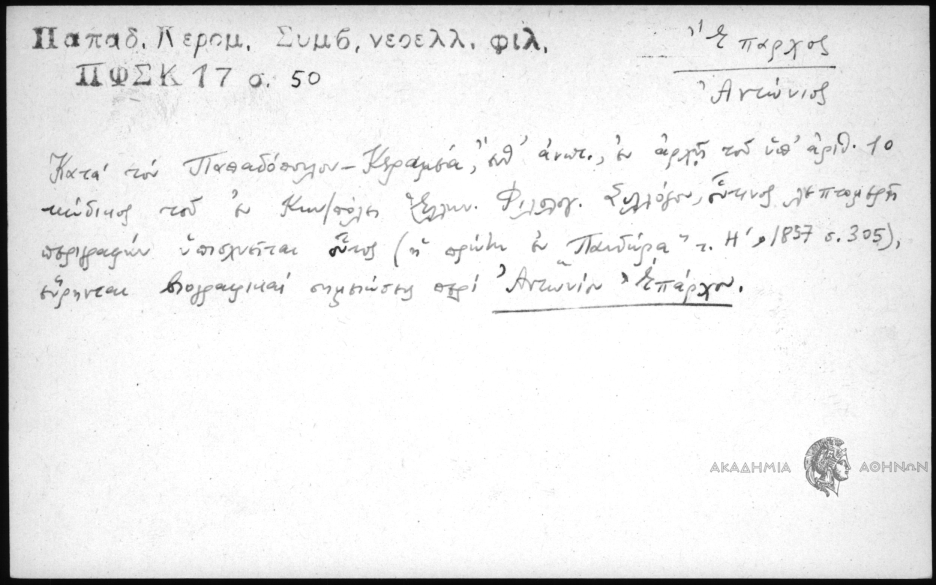 Παπαδ. Κερομ. Συμβ. νεοελλ. φιλ.
ΠΦΣΚ 17 σ. 50
Ἔπαρχος
Ἀντώνιος
Κατά τόν Παπαδόπουλον-Κεραμέα, ἔνθ' ἀνωτ., ἐν ἀρχῇ τοῦ ὑπ' ἀριθ. 10
κώδικος τοῦ ἐν Κων/πόλει Ἑλλην. Φιλολογ. Συλλόγου, οὗτινος λεπτομερῆ
περιγραφήν ὑπισχνεῖται οὗτος (ἡ πρώτη ἐν "Πανδώρᾳ" τ. Η', 1857 σ. 305),
εὕρηνται βιογραφικαί σημειώσεις περί Ἀντωνίου Ἐπάρχου.
ΑΚΑΔΗΜΙΑ ΑΘΗΝΩΝ